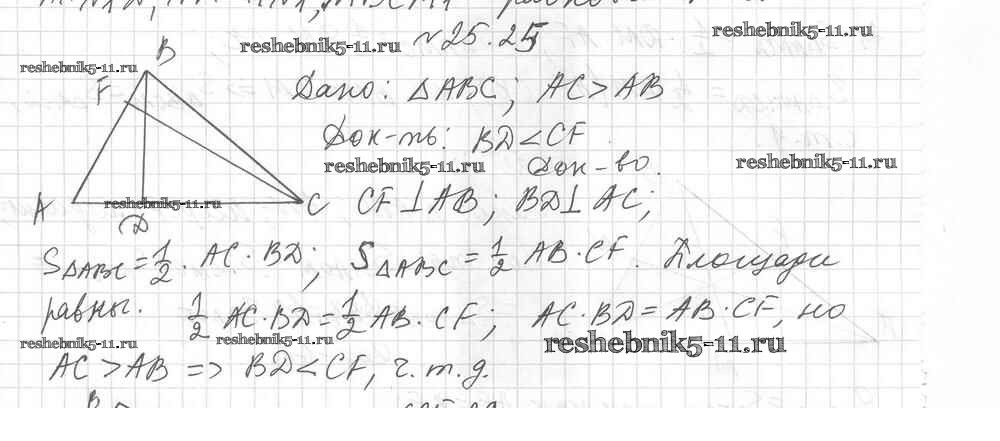 reshebnik5-11.ru
№25.25
reshebnik5-11.ru
B
reshebnik5-11.ru
F
Дано: △ABC; AC > AB
Док-ть: BD < CF
reshebnik5-11.ru
Док-во.
reshebnik5-11.ru
A
reshebnik5-11.ru
C
CF ⊥ AB; BD ⊥ AC;
D
S△ABC = 1/2 · AC · BD; S△ABC = 1/2 AB · CF. Площади
равны. 1/2 AC · BD = 1/2 AB · CF; AC · BD = AB · CF, но
reshebnik5-11.ru
reshebnik5-11.ru
reshebnik5-11.ru
AC > AB => BD < CF, ч.т.д.
B